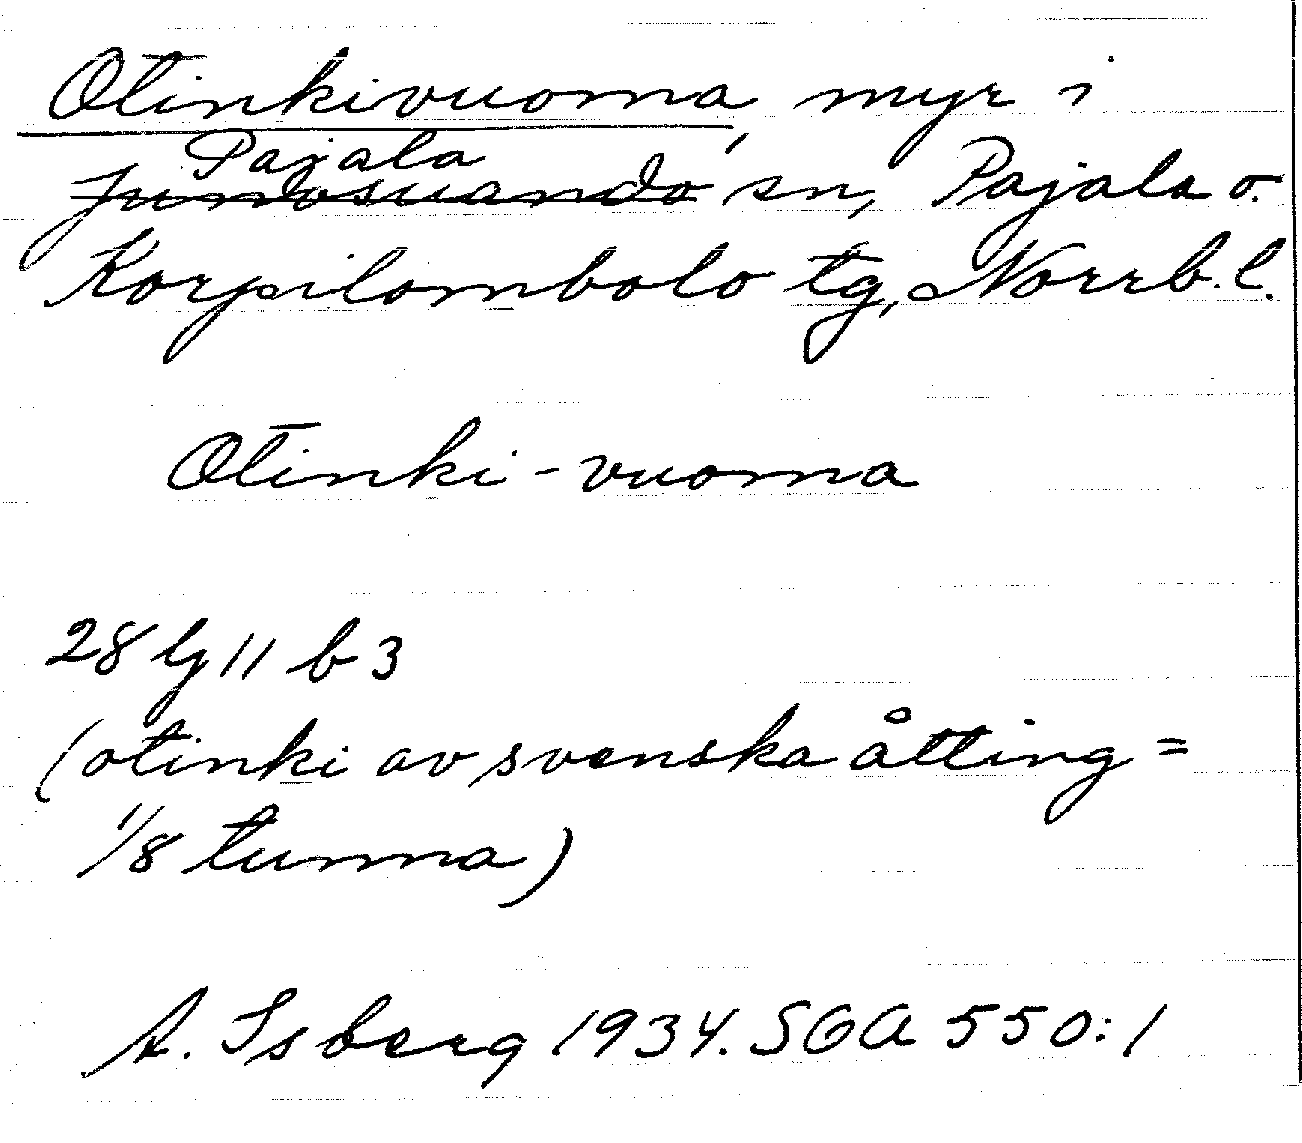 Otinkivuoma, myr i
Pajala
Junosuando sn, Pajala o.
Korpilombolo tg, Norrb. l.
Otinki-vuoma
28 lj 11 b 3
(otinki av svenska åtting =
1/8 tunna)
A. Isberg 1934. SOA 550:1